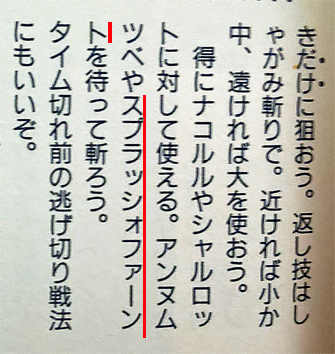 きだけに狙おう。返し技はし
ゃがみ斬りで。近ければ小か
中、遠ければ大を使おう。
　得にナコルルやシャルロッ
トに対して使える。アンヌム
ツベやスプラッシォファーン
トを待って斬ろう。
タイム切れ前の逃げ切り戦法
にもいいぞ。